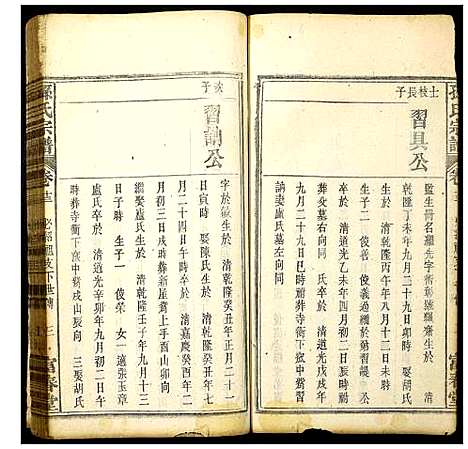 孫氏宗譜
卷
士枝長子
習具公
監生冊名耀先字術彰號耀齋生於 清
乾隆丁未年九月二十九日卯時 娶胡氏
生於 清乾隆丙午年八月十二日未時
生子二 俊善 俊義過繼勛習訓
卒於 清道光乙未年四月初二日辰時葬
右向同 氏卒於 清道光戊戌年
九月二十九日巳時葬寺衝下灣中葬習
訥妻盧氏墓左向同
次子
習訥公
字於 生於 清乾隆癸丑年正月二十一
日寅時 娶陳氏生於 清乾隆癸丑年七
月二十四日午時卒於 清嘉慶癸酉年二
月初三日戌時葬新屋 上手酉山卯向
繼娶盧氏生於 清乾隆壬子年九月十三
日子時 生子一 俊榮 女一 適張玉章
盧氏卒於 清道光辛卯年九月初二日午
時葬寺衝下灣中 戌山辰向 三娶胡氏
孫氏宗譜
卷
下世
三
富春堂